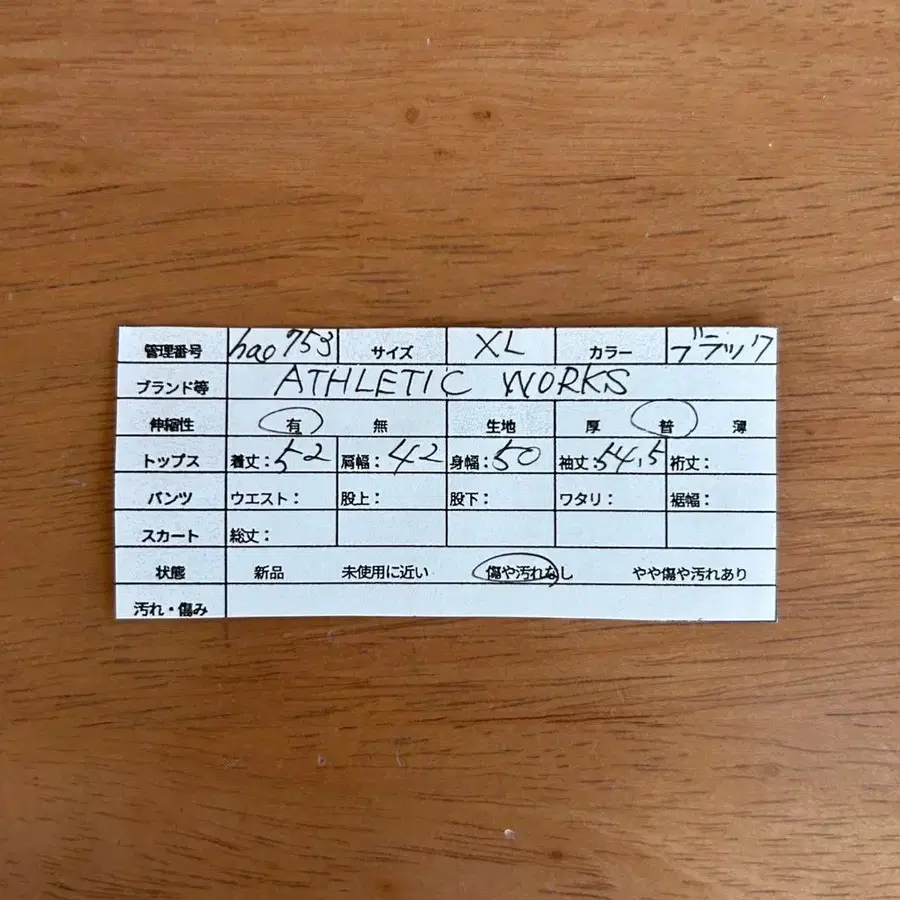 管理番号 hao753 サイズ XL カラー ブラック
ブランド等 ATHLETIC WORKS
伸縮性 有 無 生地 厚 普 薄
トップス 着丈：52 肩幅：42 身幅：50 袖丈：54.5 裄丈：
パンツ ウエスト： 股上： 股下： ワタリ： 裾幅：
スカート 総丈：
状態 新品 未使用に近い 傷や汚れなし やや傷や汚れあり
汚れ・傷み